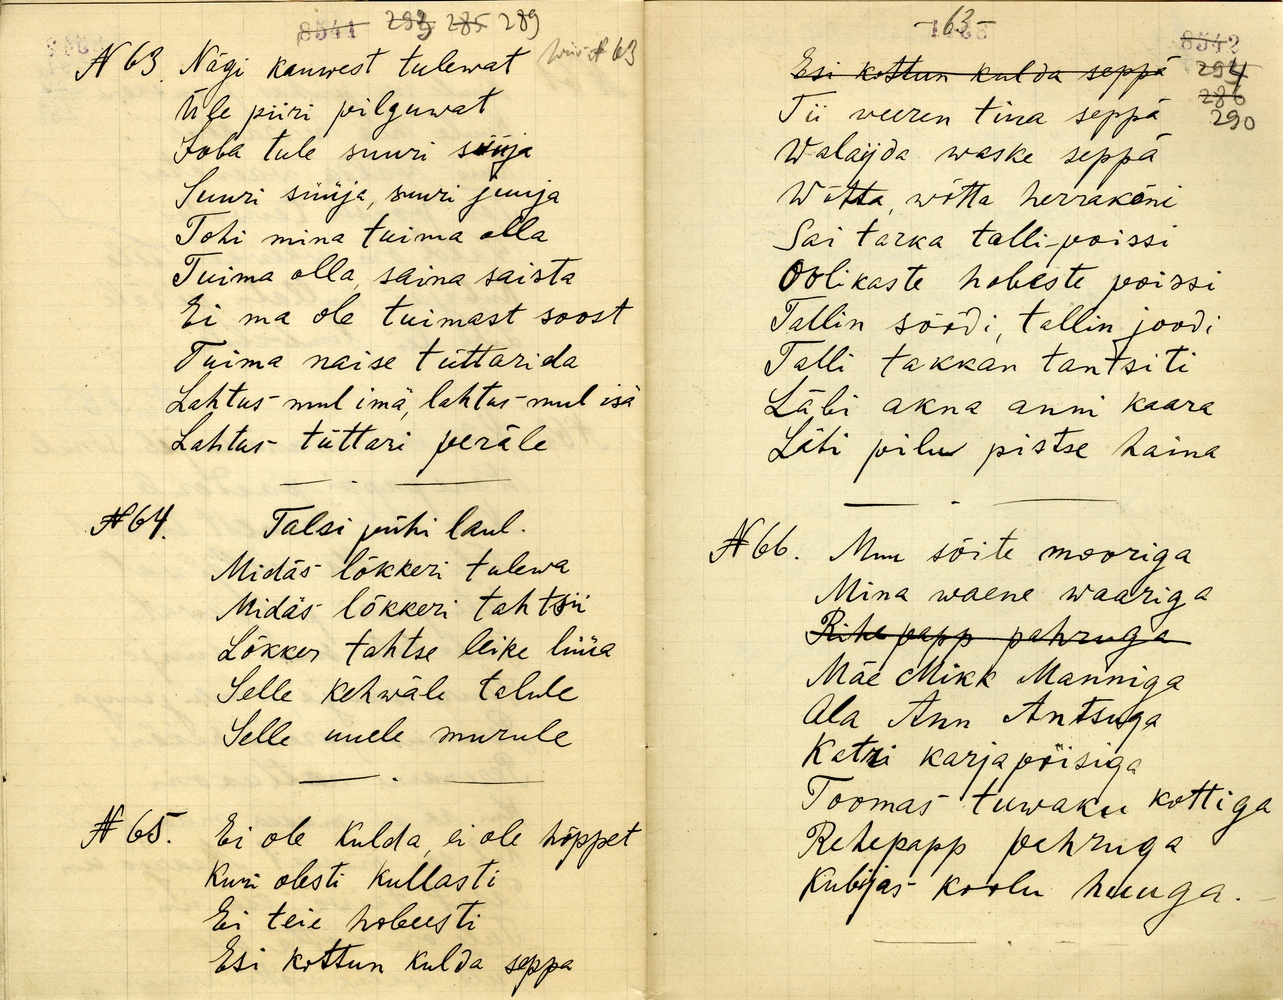 8541 283 285 289
N 63 Nägi kauwest tulewat
Üle piiri pilguwat
Joba tule suuri süüja
Suuri süüja, suuri juuja
Tohi mina tuima olla
Tuima olla, saina saista
Ei ma ole tuimast soost
Tuima naise tüttarida
Lahtus mul imä, lahtus mul isä
Lahtus tüttari peräle
N 64. Talsi pühi laul.
Midäs lõkkeri tulewa
Midäs lõkkeri tahtsii
Lõkker tahtse leike lüüa
Selle kehwäle talule
Selle uuele murule
N 65. Ei ole kulda, ei ole hõppet
Kuri olesti kullasti
Ei teie hobeesti
Esi kottun kulda seppa
-63-
8542
294
286
290
Esi kottun kulda seppä
Tii veeren tina seppä
Walaijda waske seppä
Wõtta, wõtta herrakõni
Sai tarka talli-poissi
Oolikaste hobeste poissi
Tallin söödi, tallin joodi
Talli takkan tantsiti
Läbi akna anni kaara
Läbi pilu pistse haina
N 66. Muu sõite mooriga
Mina waene waariga
Rihe papp pahruga
Mäe Mikk Manniga
Ala Ann Antsuga
Katri karjapõisiga
Toomas tuwaku kottiga
Rehepapp pehruga
Kubijas koolu huuga.